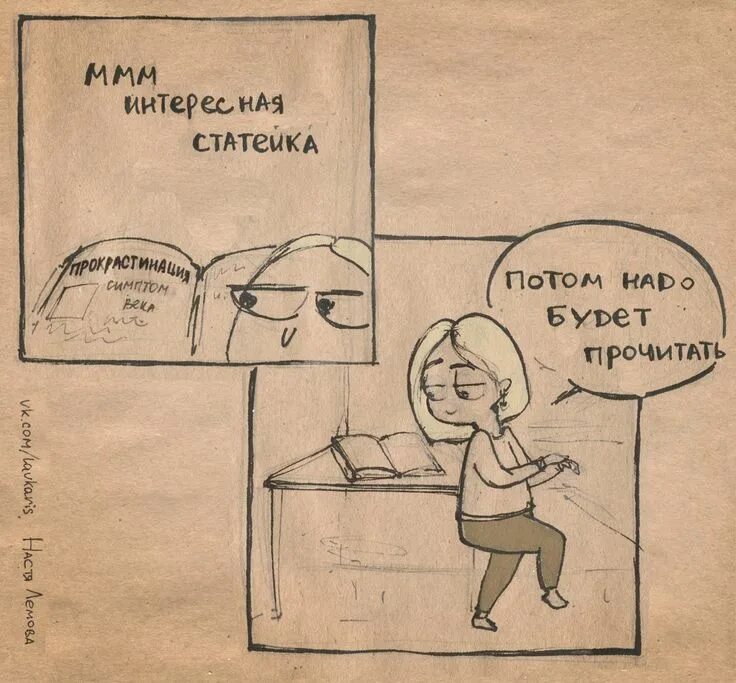 ммм
интересная
статейка
прокрастинация
симптом
века
потом надо
будет
прочитать
vk.com/lavkaris. Настя Лемова